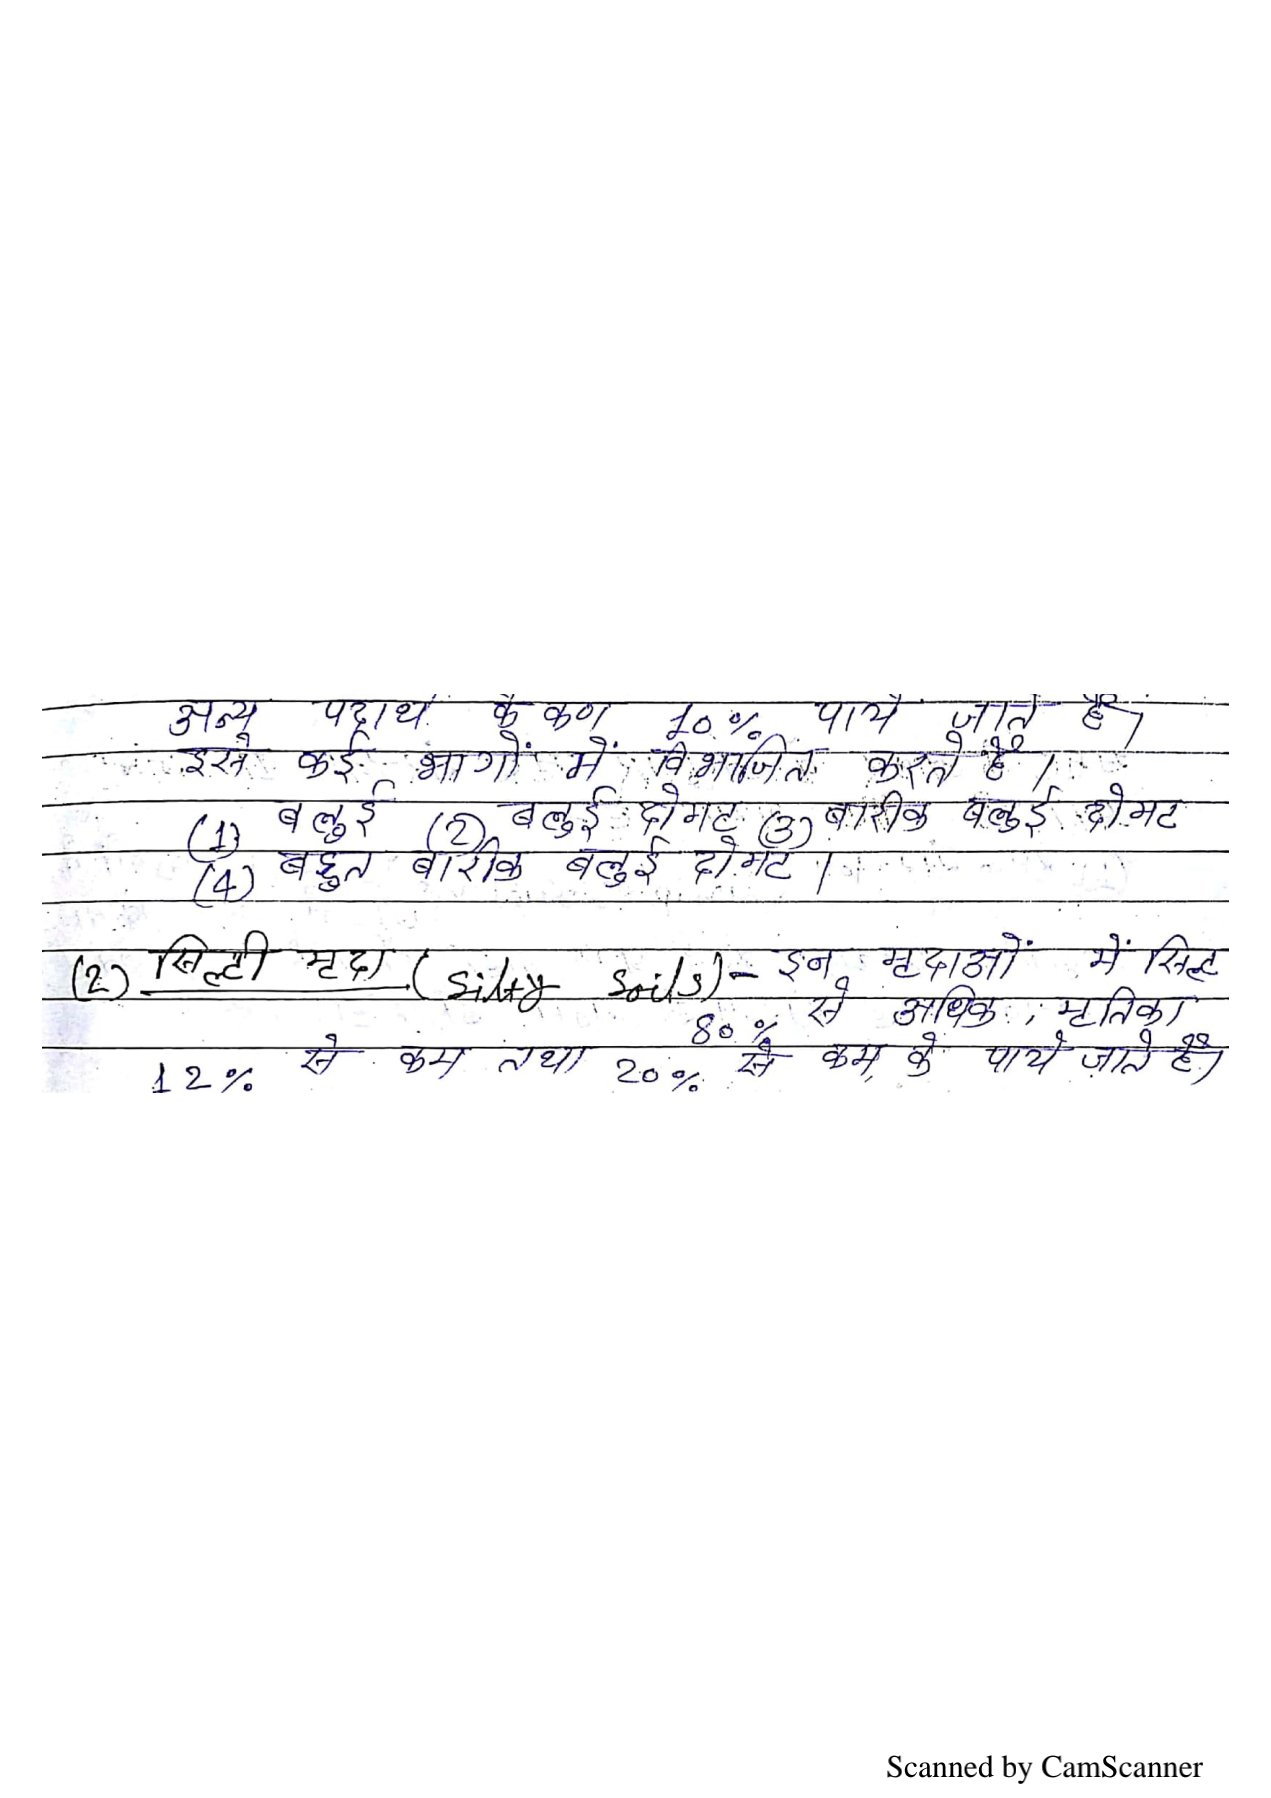 अन्य पदार्थ के कण 10% पाये जाते हैं,
इसे कई भागों में विभाजित करते हैं।
(1) बलुई (2) बलुई दोमट (3) बारीक बलुई दोमट
(4) बहुत बारीक बलुई दोमट।
(2) सिल्टी मृदा (Silty Soils) - इन मृदाओं में सिल्ट
80% से अधिक, मृतिका
12% से कम तथा 20% से कम के पाये जाते हैं,
Scanned by CamScanner